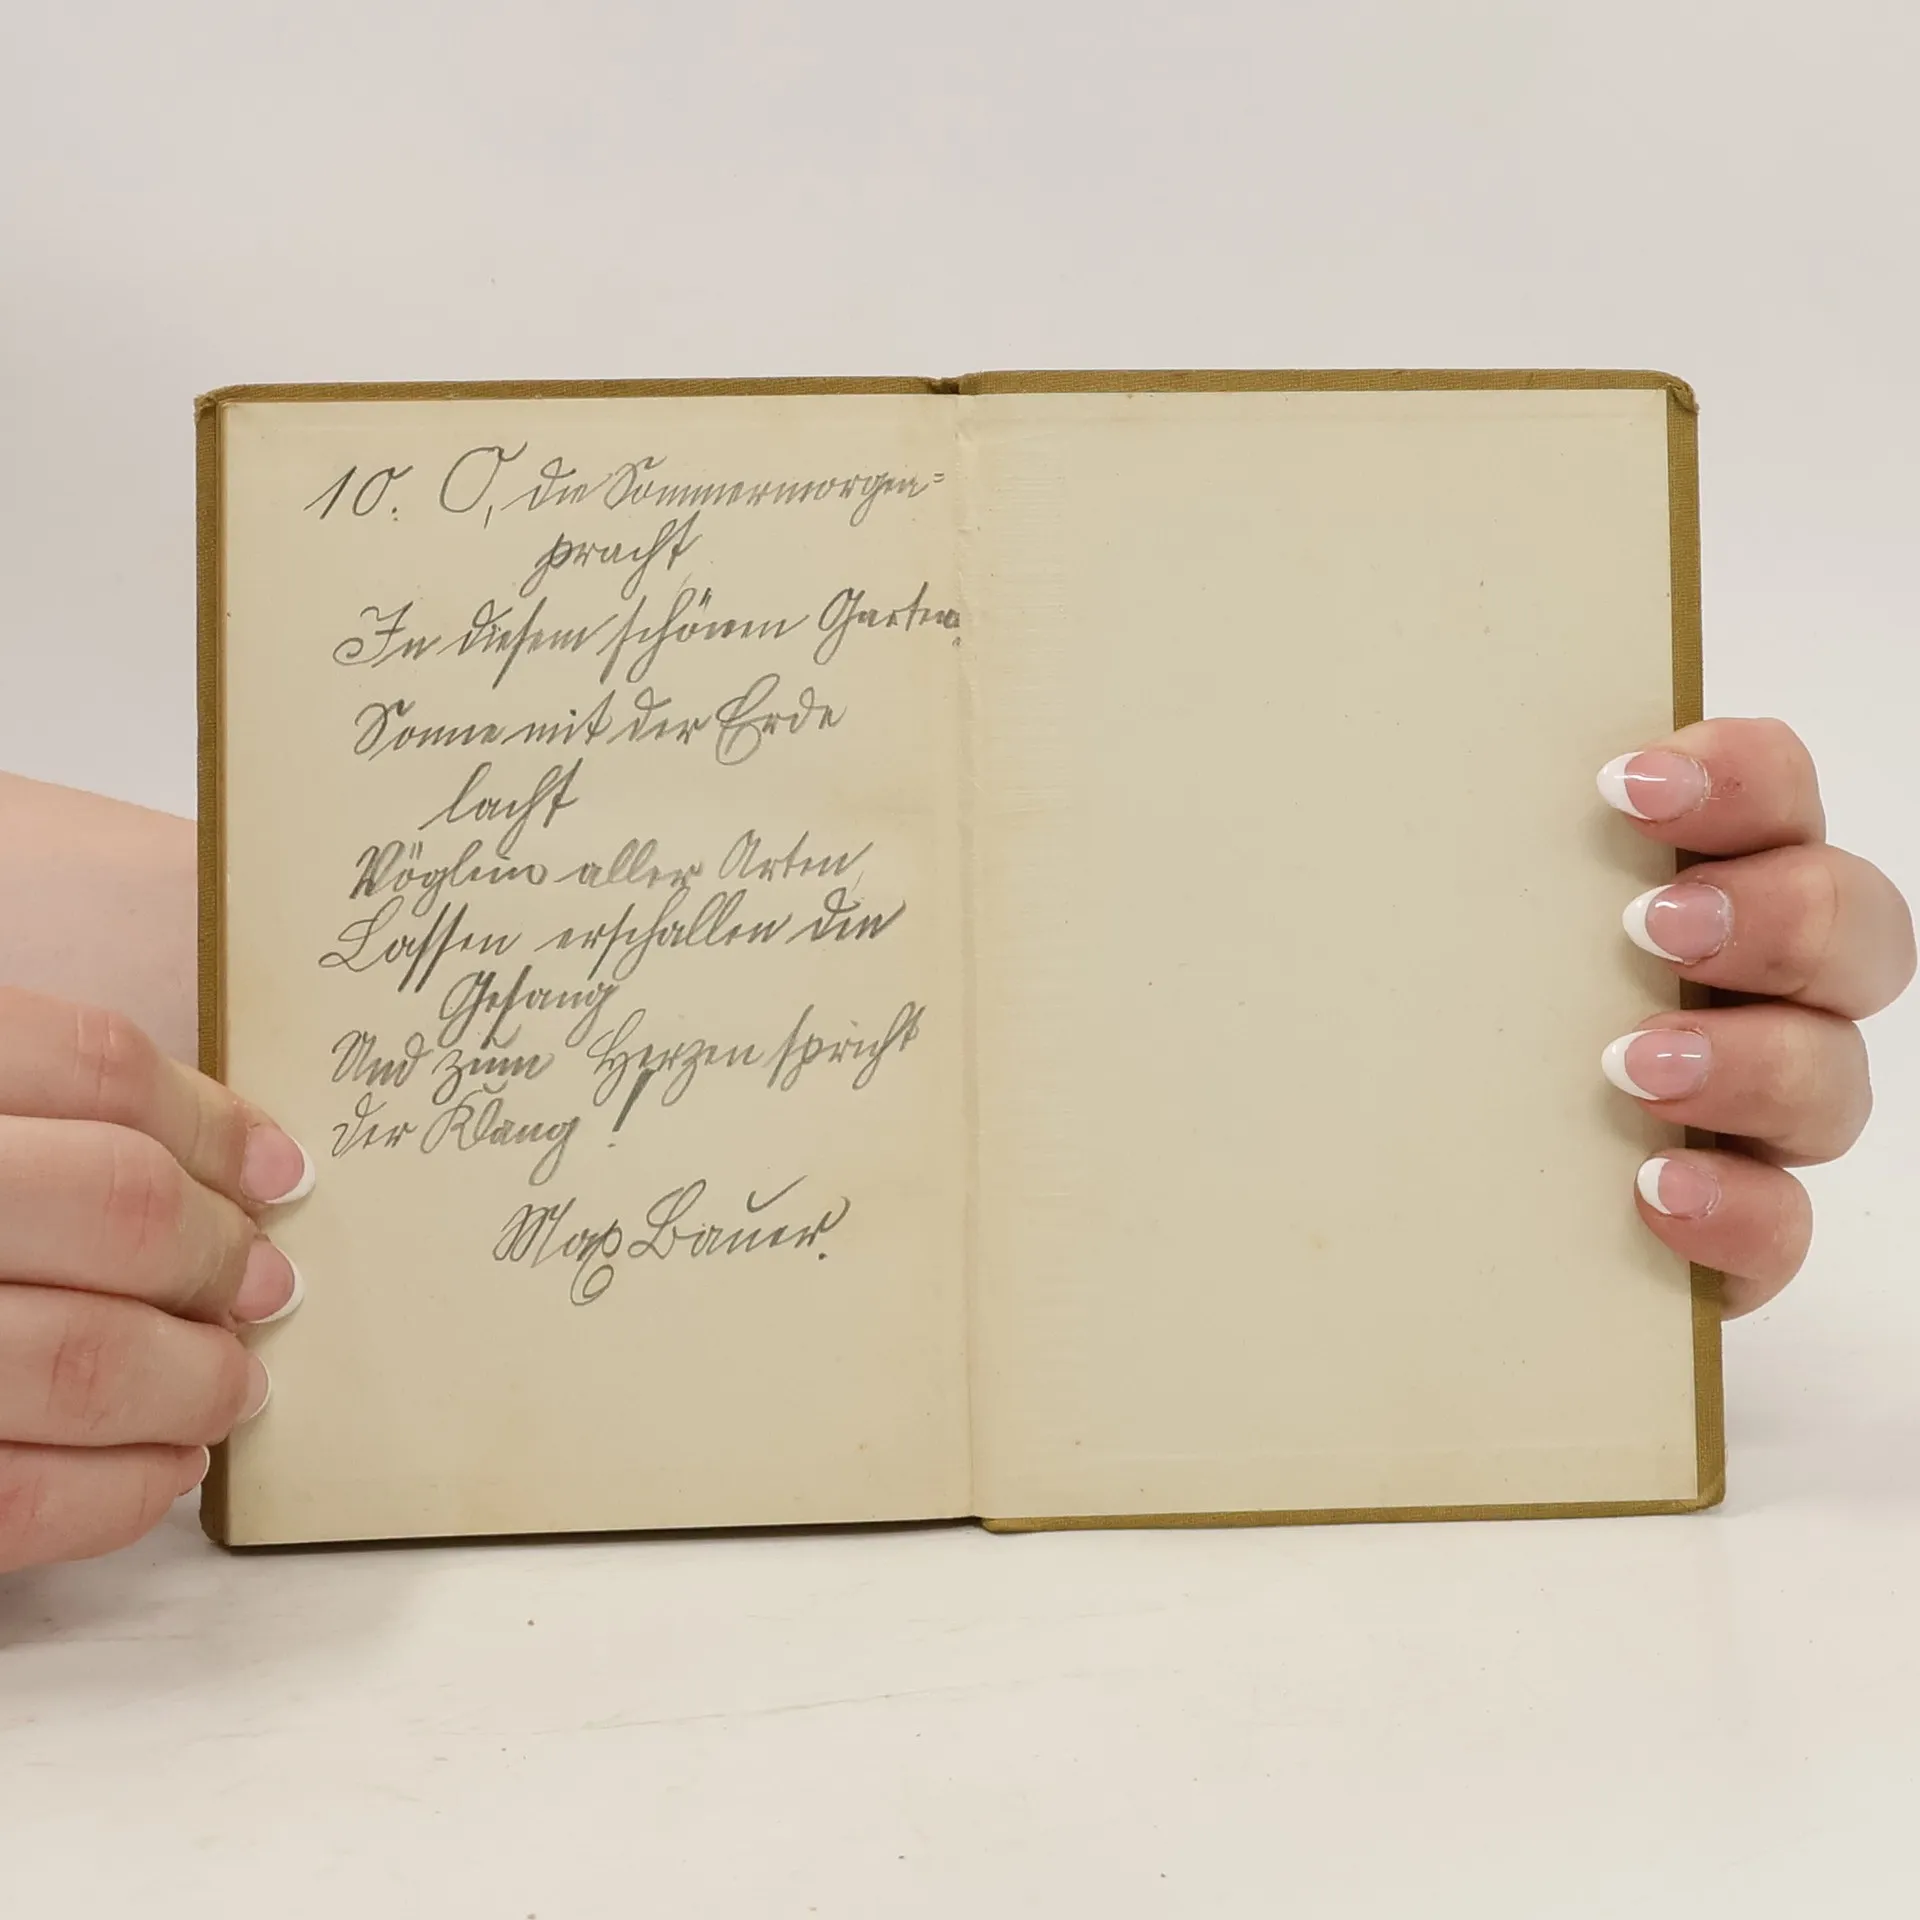 10. O, die Sommermorgen=
pracht
In diesem schönen Garten.
Sonne mit der Erde
lacht
Vöglein aller Arten,
Lassen erschallen den
Gesang
Und zum Herzen spricht
der Klang!
Max Bauer.